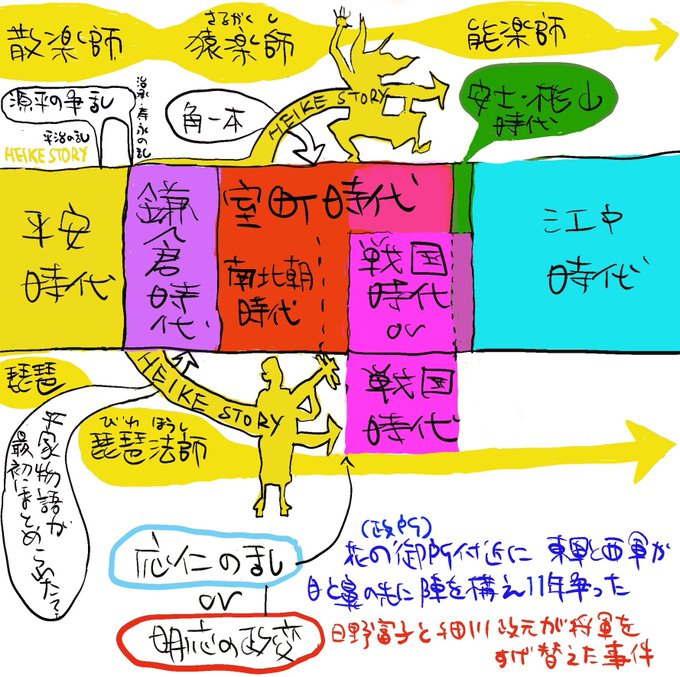 散楽師
さるがくし
猿楽師
能楽師
源平の争乱
治承・寿永の乱
平治の乱
HEIKE STORY
角一本
HEIKE STORY
安土・桃山
時代
平安
時代
鎌倉時代
室町時代
南北朝
時代
戦国
時代
or
戦国
時代
江戸
時代
琵琶
HEIKE STORY
びわ ほうし
琵琶法師
平家物語が
最初にまとめられた?
応仁の乱
or
明応の政変
(政所)
花の御所付近に 東軍と西軍が
目と鼻の先に陣を構え11年争った
日野富子と細川政元が将軍を
すげ替えた事件